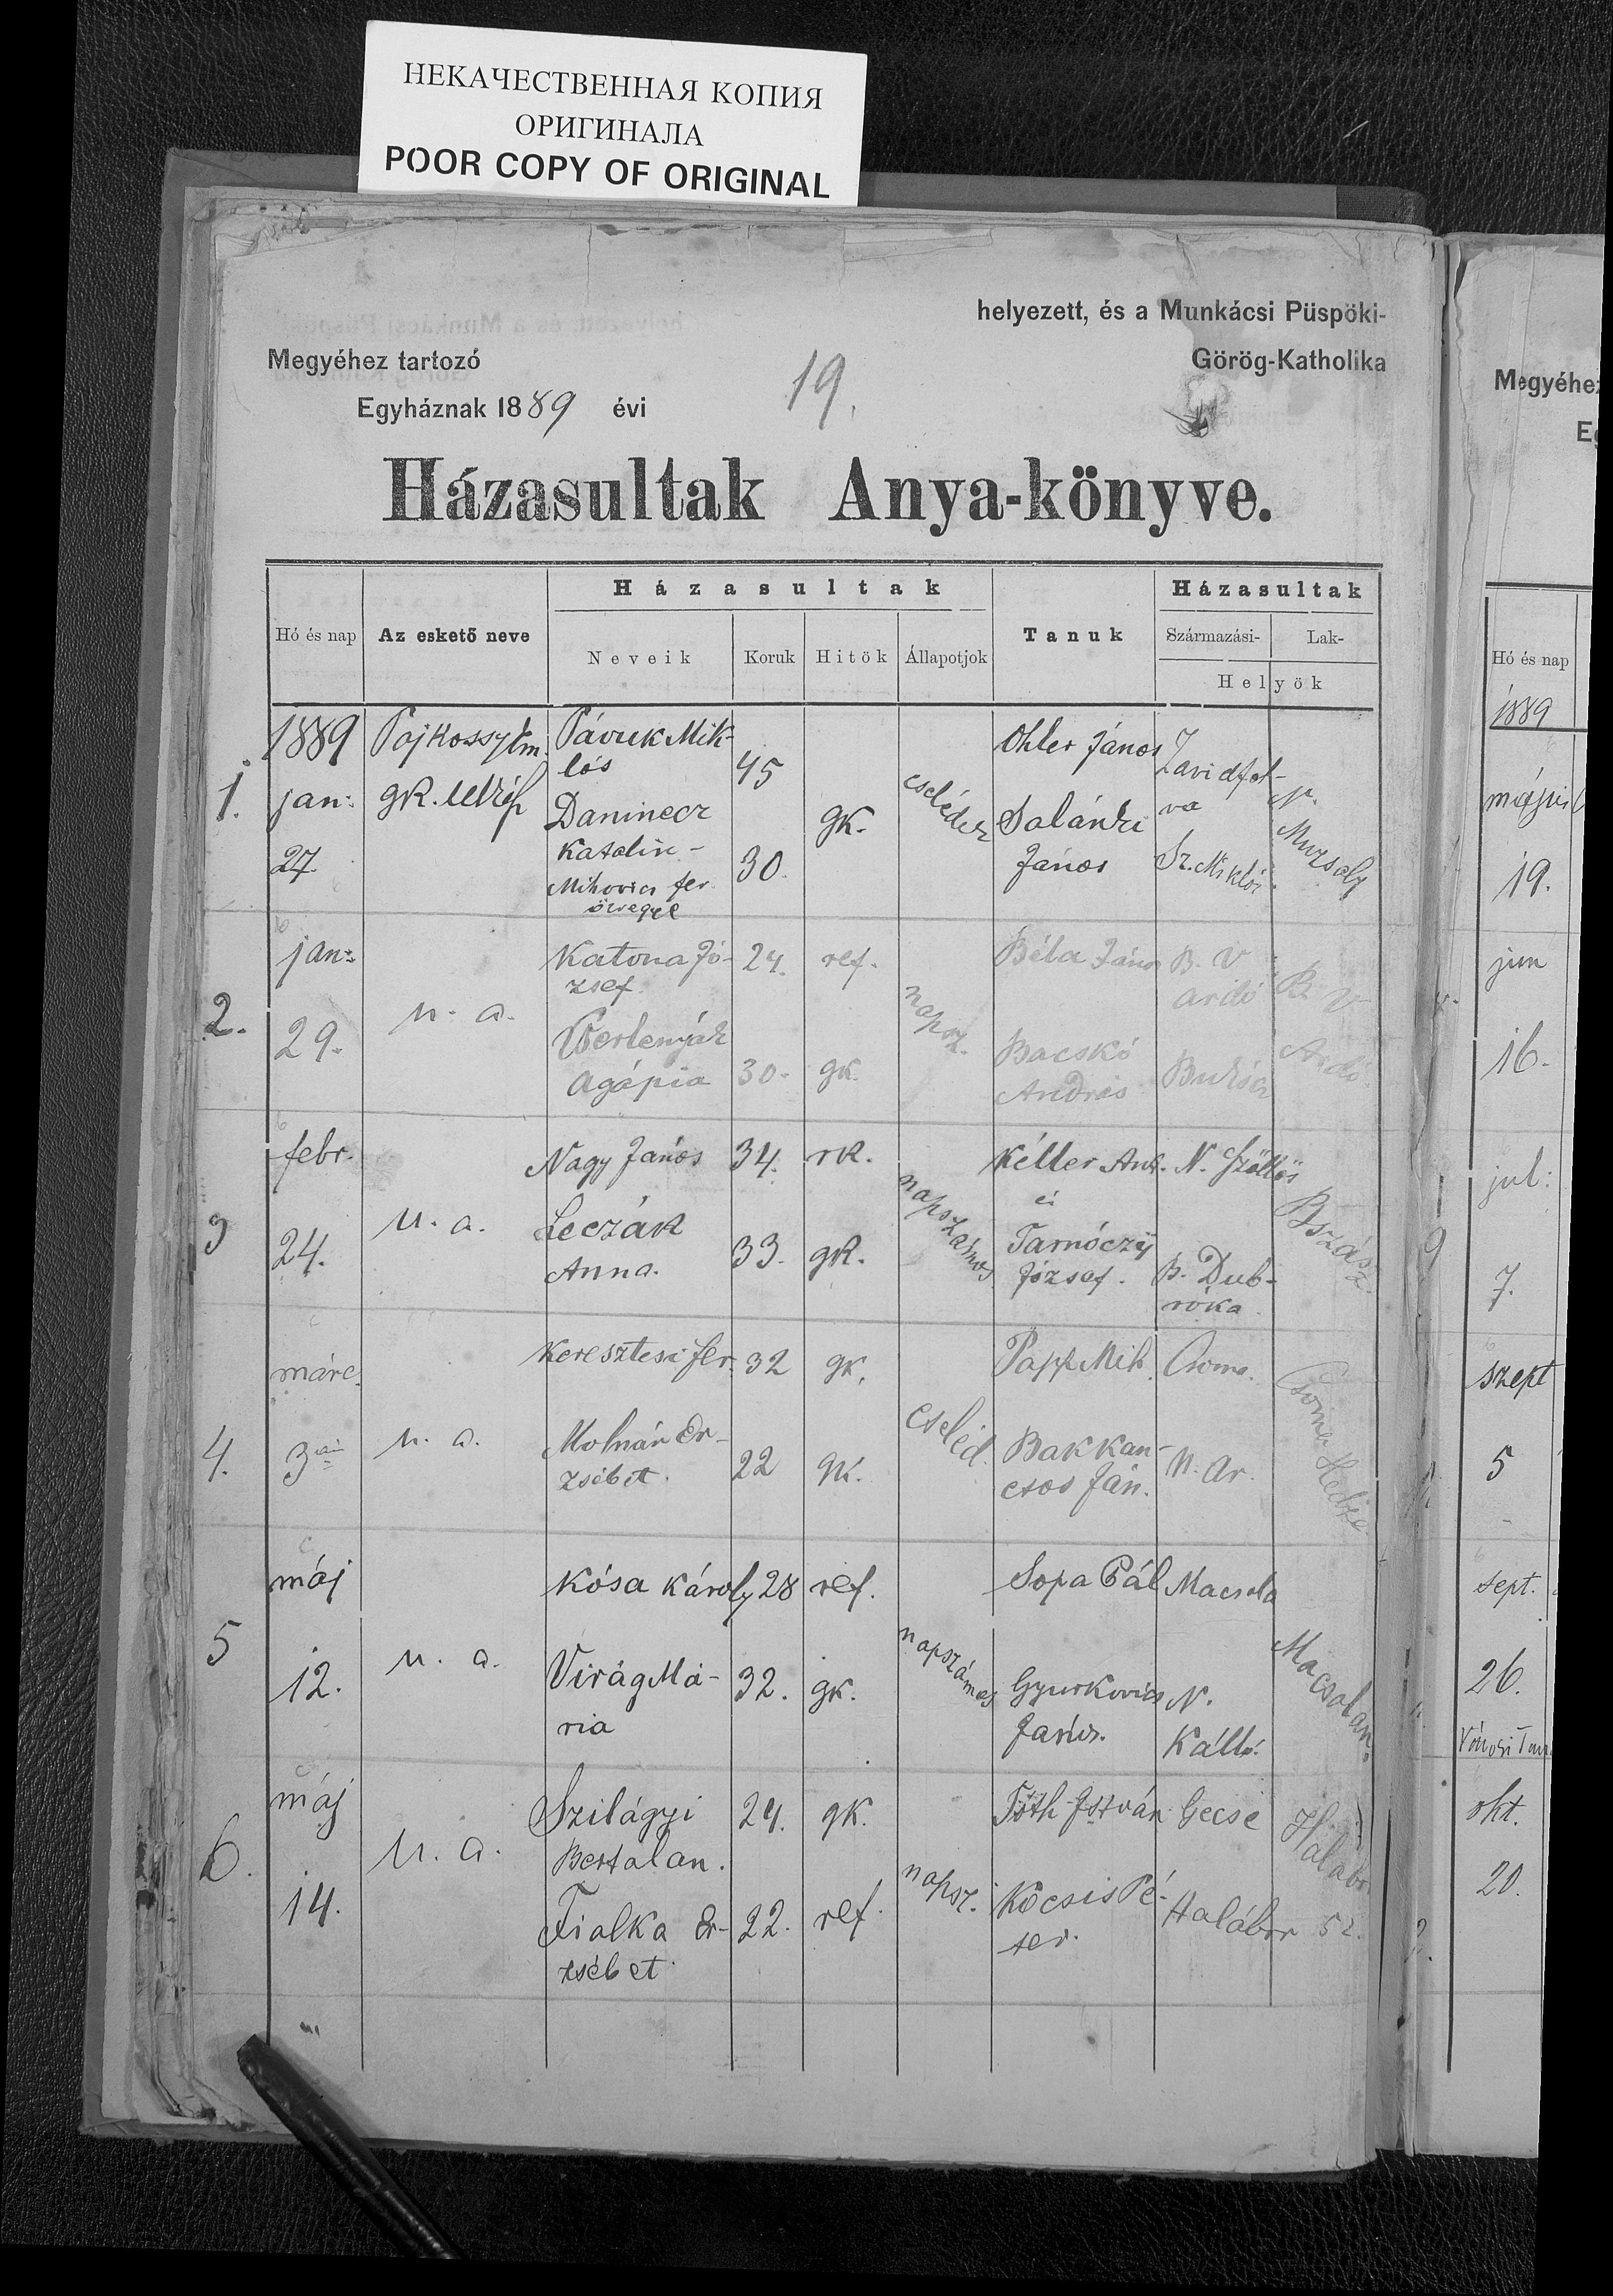 НЕКАЧЕСТВЕННАЯ КОПИЯ
ОРИГИНАЛА
POOR COPY OF ORIGINAL
helyezett, és a Munkácsi Püspöki-
Megyéhez tartozó
Görög-Katholika
Egyháznak 1889 évi
19.
Házasultak Anya-könyve.
Házasultak
Házasultak
Hó és nap
Az eskető neve
Neveik
Koruk
Hitök
Állapotjok
Tanuk
Származási-
Lak-
Helyök
1.
1889
jan:
27.
gk.
Pávuk Mik-
lós
45
Daninecz
Katalin -
Mihovics fer
özvegye
30.
gk.
cselédek
Ohler János
Salánki
János
Závidfal-
va
Sz. Miklós
N.
Muzsaly
2.
jan:
29.
u. a.
Katona Jó-
zsef
24.
ref.
Agápia
30.
gk.
napsz.
Béla János
Bacskó
András
B. V
Ardó
B. V
Ardó.
3
febr.
24.
u. a.
Nagy János
34.
rk.
Leczák
Anna.
33.
gk.
napszámos
Kéller Ant.
és
Tarnóczy
József.
N. Szőllős
B. Dub-
róka.
Bszász
4.
márc.
3án
u. a.
Keresztesi fer.
32
gk.
Molnár Er-
zsébet.
22
gk.
cseléd.
Papp Mih.
Bakkan-
csos Ján.
Csoma.
N. Ar.
Csoma
5
máj
12.
u. a.
Kósa Károly
28
ref.
Virág Má-
ria
32.
gk.
napszámos
Sopa Pál
Gyurkovics
János.
Macsola
N.
Kálló.
Macsolan.
6.
máj
14.
u. a.
Szilágyi
Bertalan.
24.
gk.
Fialka Er-
zsébet.
22.
ref.
napsz.
Tóth István
Kocsis Pé-
ter.
Gecse
Halábor 52.
Halábor
Megyéhez
Hó és nap
1889
19.
jun
16.
jul:
7.
szept
5
sept.
26.
okt.
20.